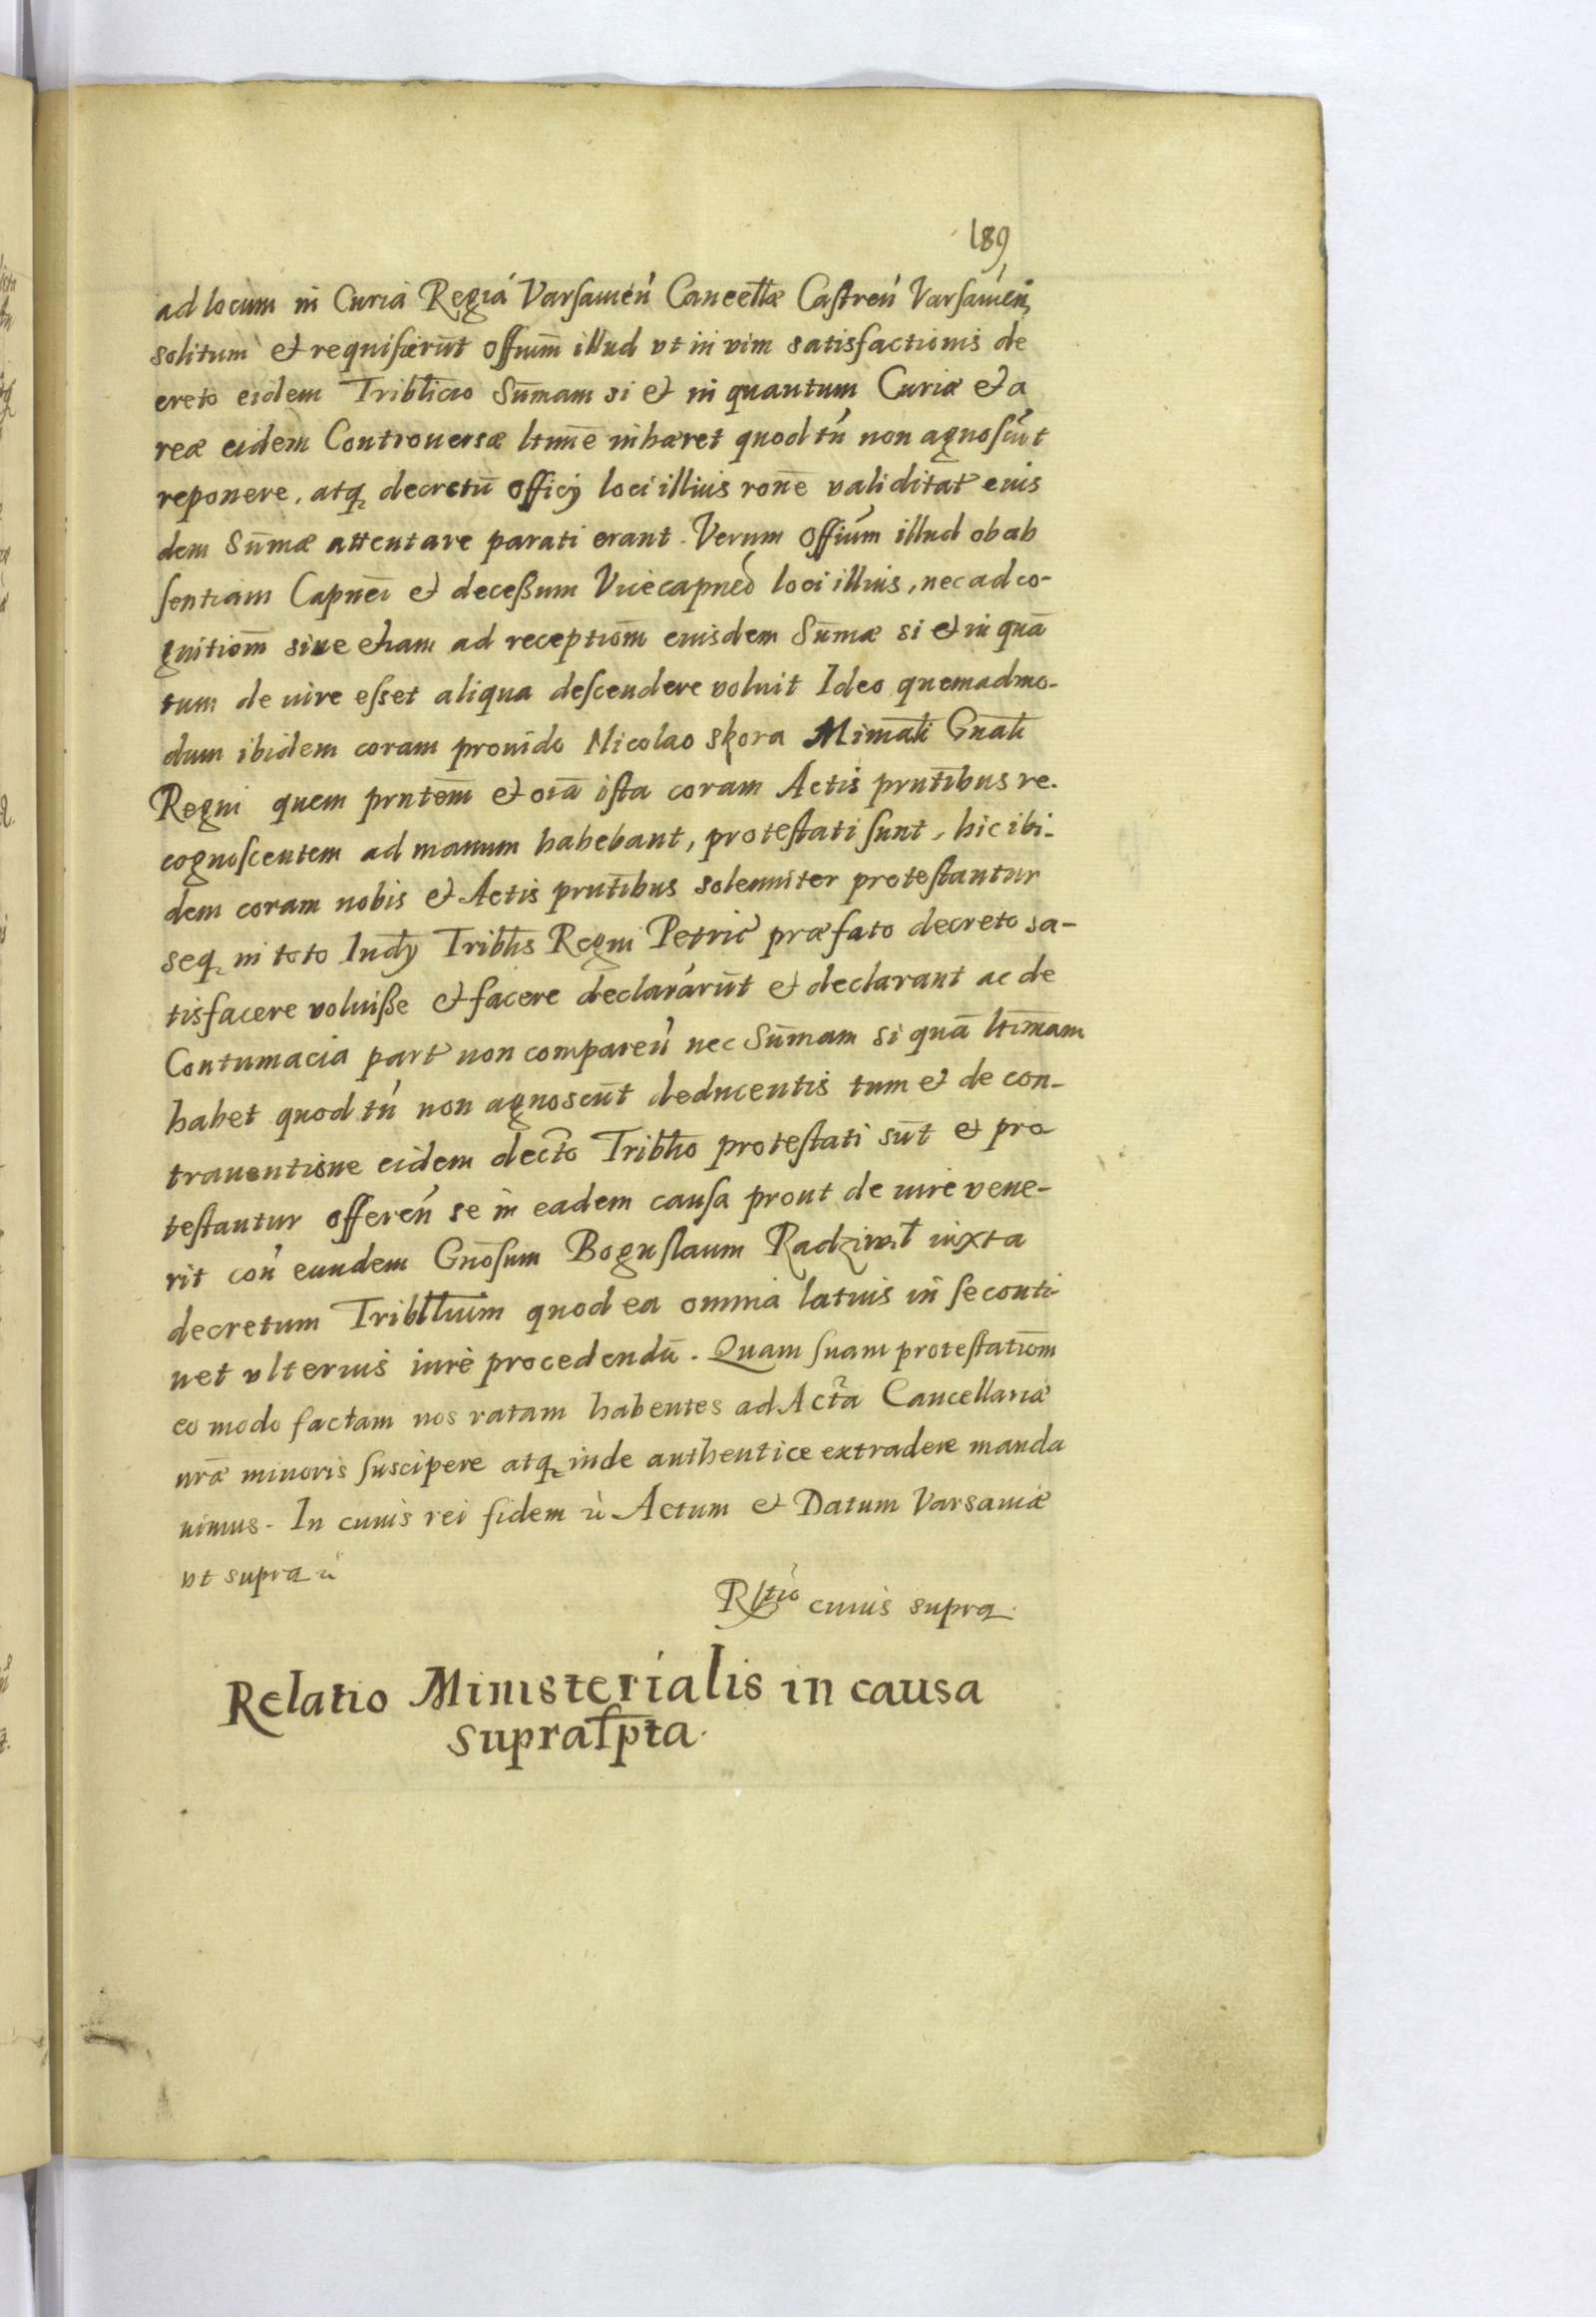 189
ad locum in Curia Regiá Varsauień Cancellæ Castreń Varsauień
solitum et requisierūt Offiium̄ illud vt in vim satisfactionis de
creto eidem Triblicio Sum̄am si et in quantum Curiæ et a
reæ eidem Controuersæ ltime inhæret quod tń non agnoscūt
reponere, atq decretū officÿ loci illius rone validitat eius
dem Sum̄æ attentare parati erant. Verum Offium illud ob ab
sentiam Capnei et deceßum Vicecapnei loci illius, nec ad co-
gnitiom̄ siue etiam ad receptiom̄ eiusdem Sum̄æ si et in quā
tum de iure esset aliqua descendere voluit Ideo quemadmo-
dum ibidem coram prouido Nicolao Skora Minrali Gnali
Regni quem prntem̄ et oīa ista coram Actis prntibus re.
cognoscentem ad manum habebant, protestati sunt, hic ibi-
dem coram nobis et Actis prntibus solenniter protestantur
seq in toto Iudÿ Triblis Regni Petric præfato decreto sa-
tisfacere voluiße et facere declarárūt et declarant ac de
Contumacia part non compareń nec Sum̄am si quā ltimam
habet quod tń non agnoscūt deducentis tum et de con-
trauentione eidem decto Triblio protestati sūt et pro
testantur offereń se in eadem causa prout de iure vene-
rit coń eundem Gnosum Boguslaum Radziwił iuxta
decretum Tribllium quod ea omnia latius in se conti-
net vlterius iure procedendū. Quam suam protestatiom̄
eo modo factam nos ratam habentes ad Acta Cancellariæ
nræ minoris suscipere atq inde authentice extradere manda
uimus. In cuius rei fidem ec Actum et Datum Varsauiæ
vt supra ec
Rltio cuius supra.
Relatio Ministerialis in causa
suprasp̄ta.